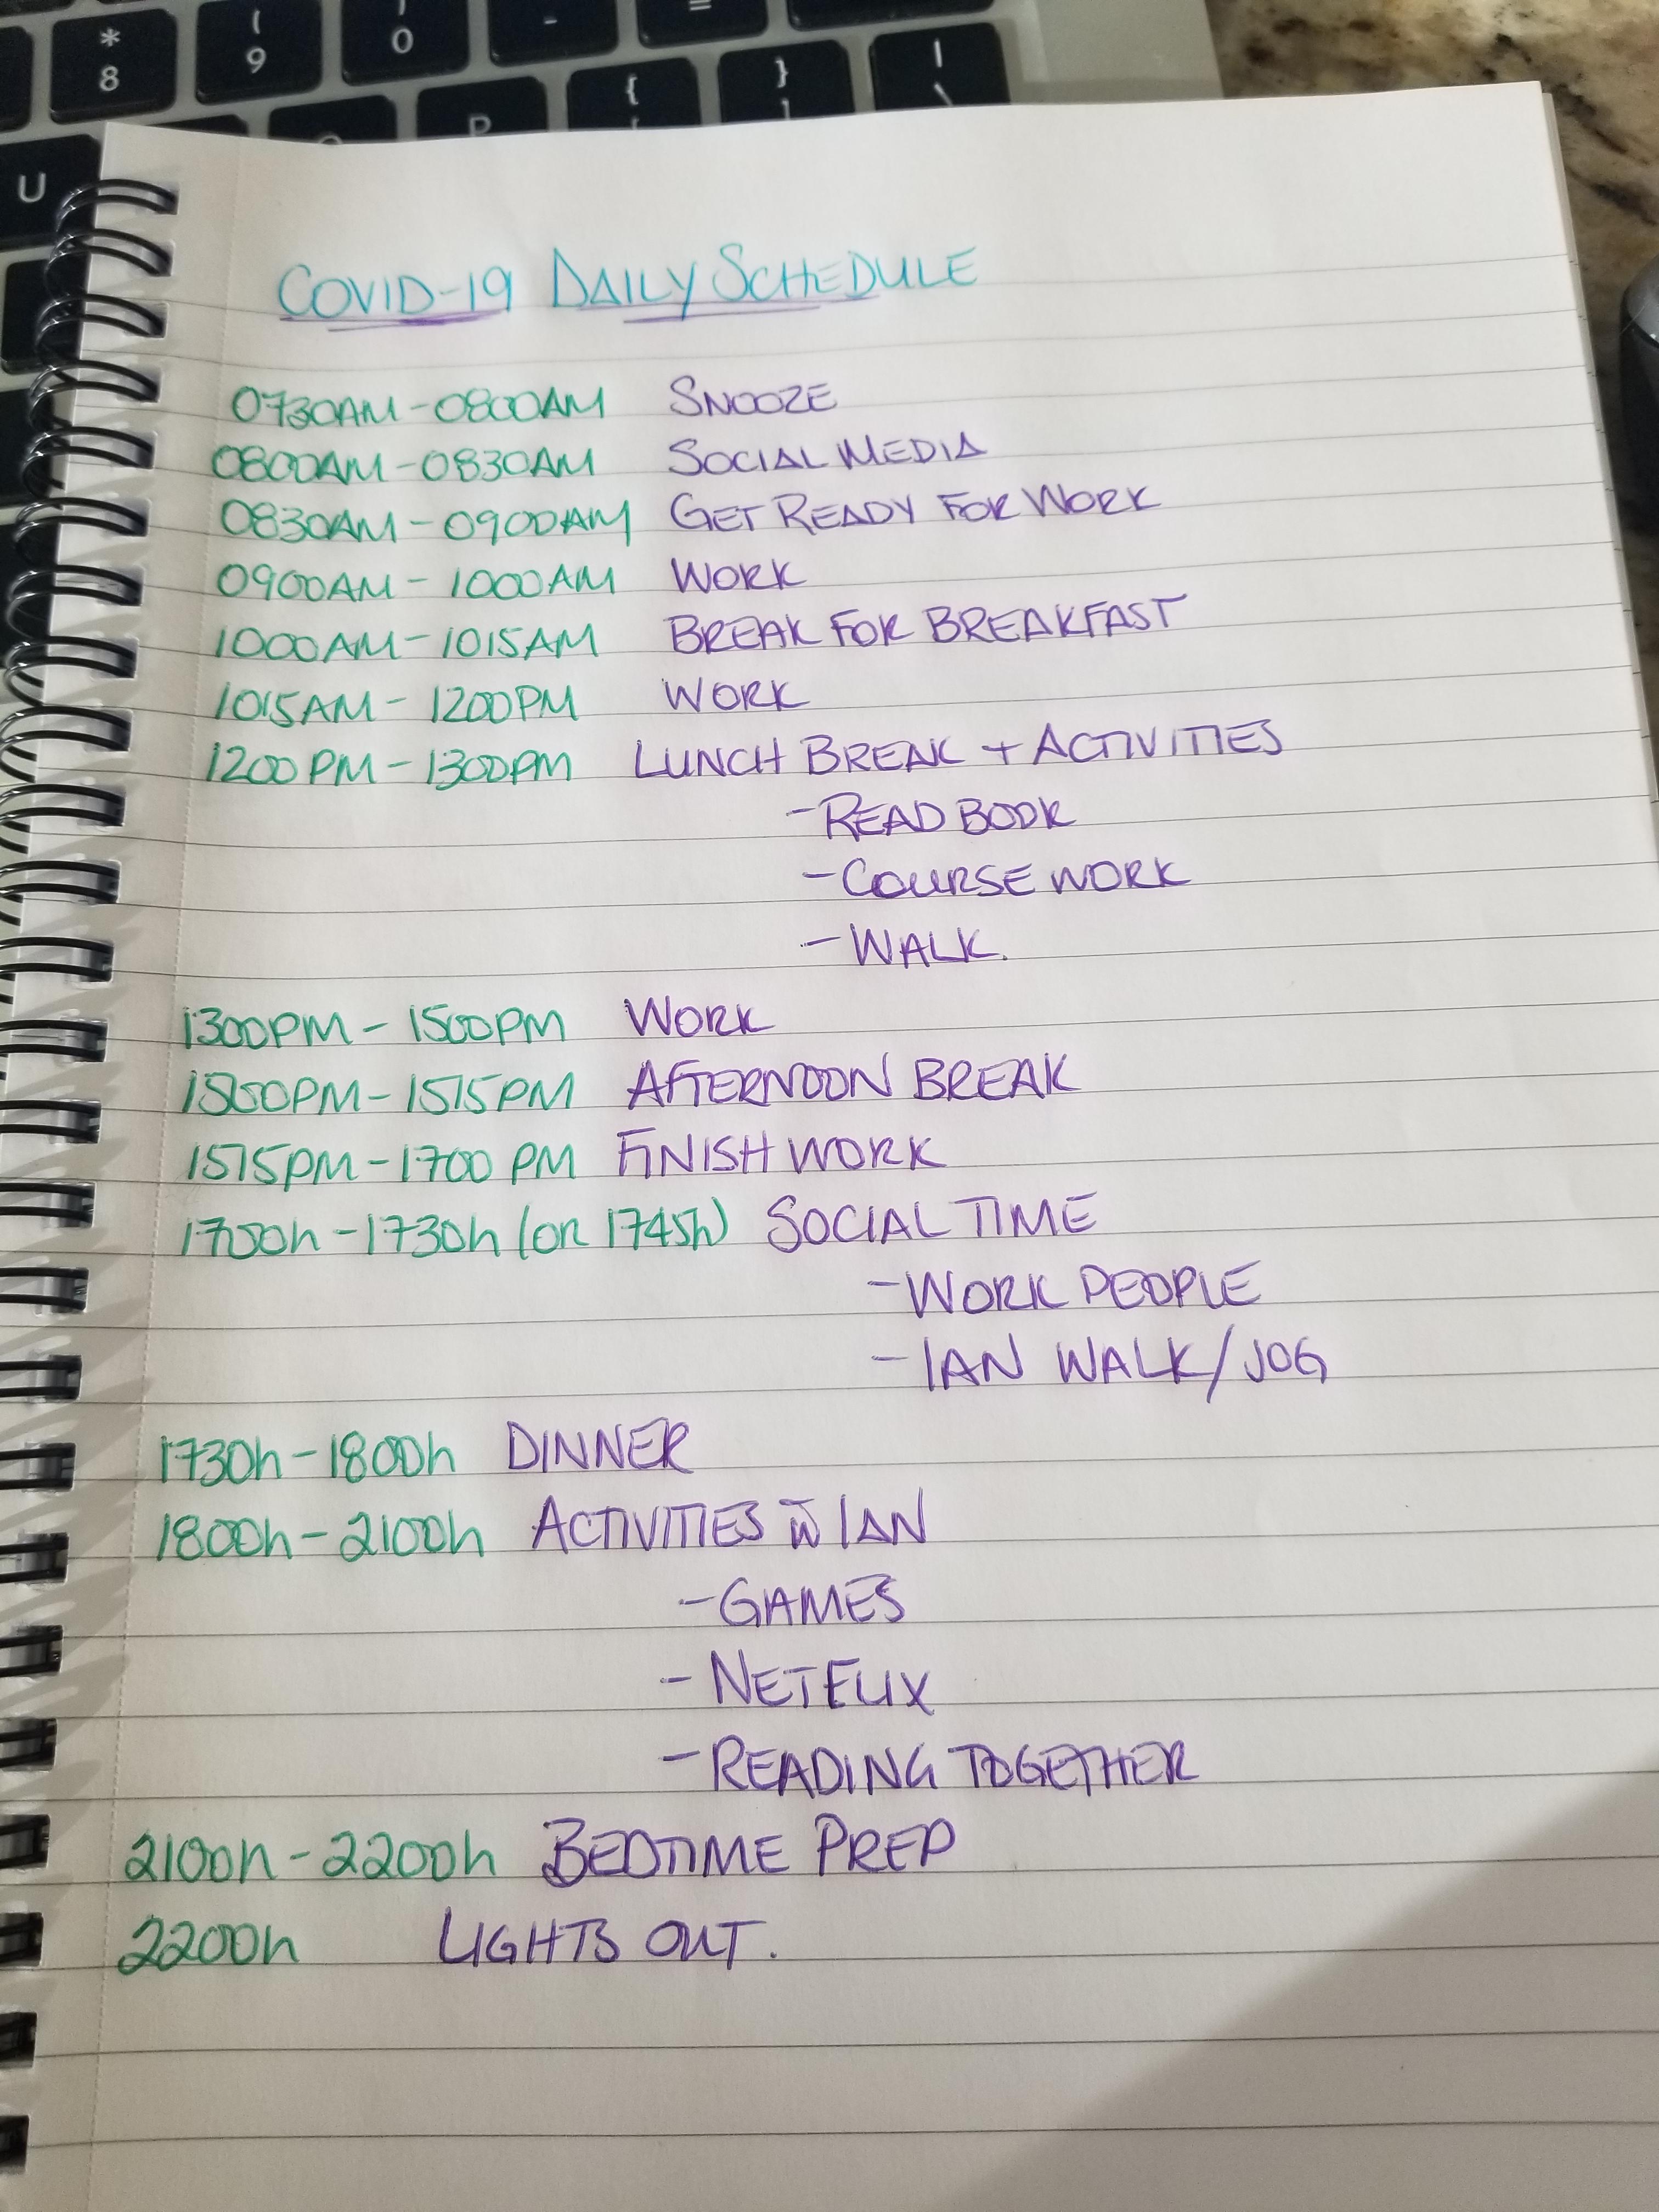 * 8
( 9
) 0
-
=
U
P
{ [
} ]
| \
COVID-19 DAILY SCHEDULE
0730AM-0800AM SNOOZE
0800AM-0830AM SOCIAL MEDIA
0830AM-0900AM GET READY FOR WORK
0900AM-1000AM WORK
1000AM-1015AM BREAK FOR BREAKFAST
1015AM-1200PM WORK
1200PM-1300PM LUNCH BREAK + ACTIVITIES
-READ BOOK
-COURSE WORK
-WALK.
1300PM-1500PM WORK
1500PM-1515PM AFTERNOON BREAK
1515PM-1700PM FINISH WORK
1700h-1730h (OR 1745h) SOCIAL TIME
-WORK PEOPLE
-IAN WALK/JOG
1730h-1800h DINNER
1800h-2100h ACTIVITIES w̄ IAN
-GAMES
-NETFLIX
-READING TOGETHER
2100h-2200h BEDTIME PREP
2200h LIGHTS OUT.